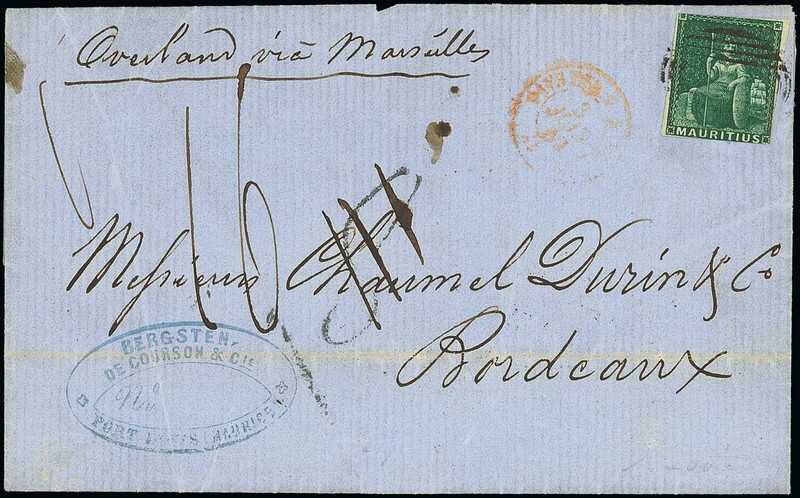 Overland viâ Marseilles
MAURITIUS
16
Messieurs Chaumel Durin & Co
Bordeaux
BERGSTEN,
DE COURSON & CIE
No
PORT LOUIS (MAURICE)